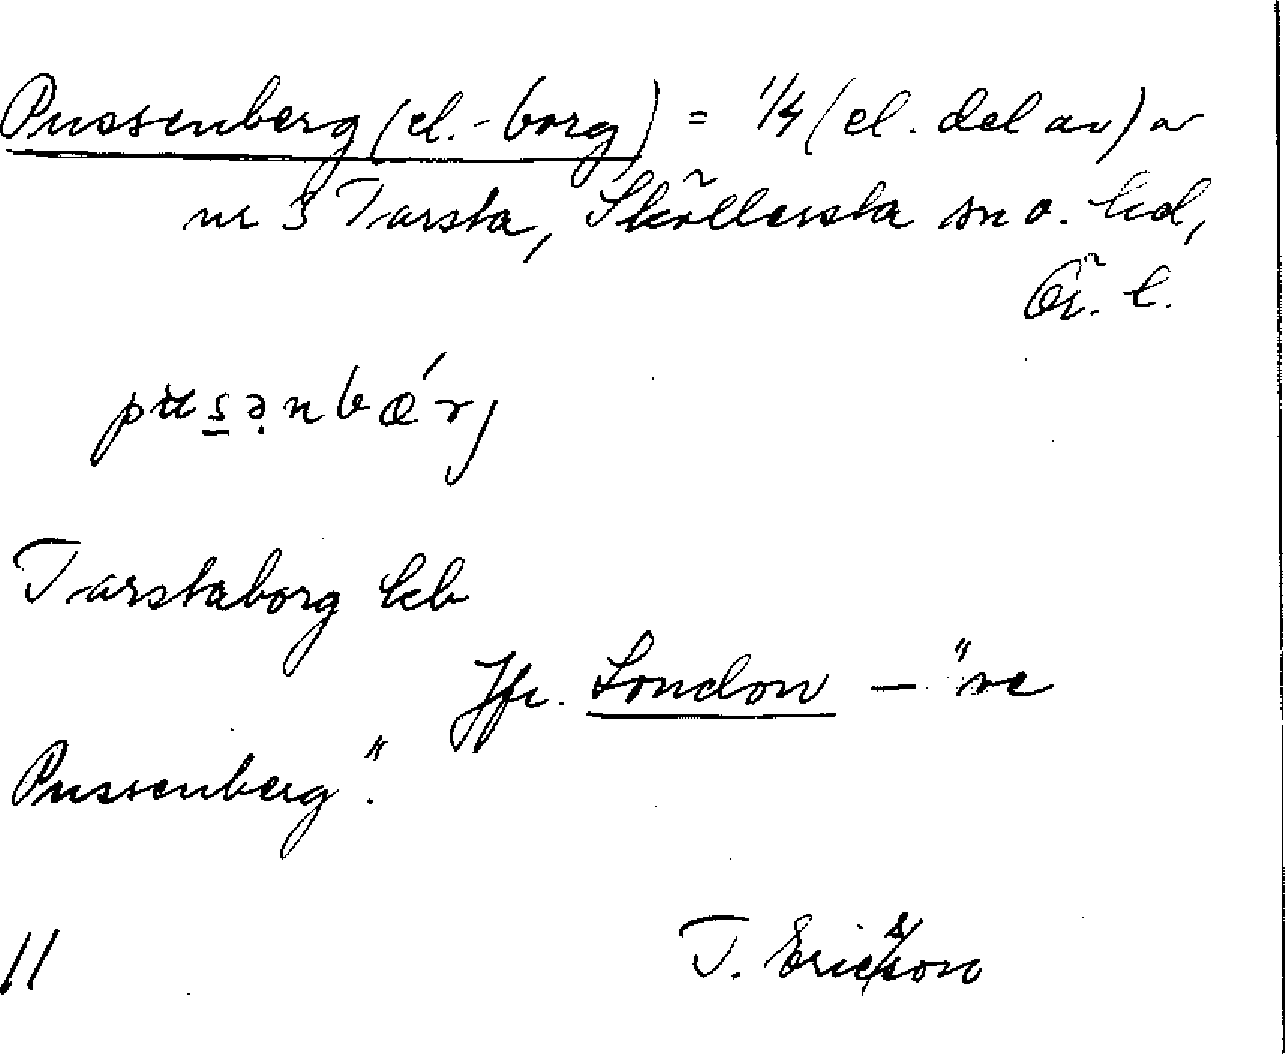 Pussenberg (el. -borg) = 1/4 (el. del av) av
nr 3 Tarsta, Sköllersta sn o. hd,
Ör. l.
pusənbǽrj
Tarstaborg kb
Jfr. London — "ve
Pussenberg".
11
T. Ericsson